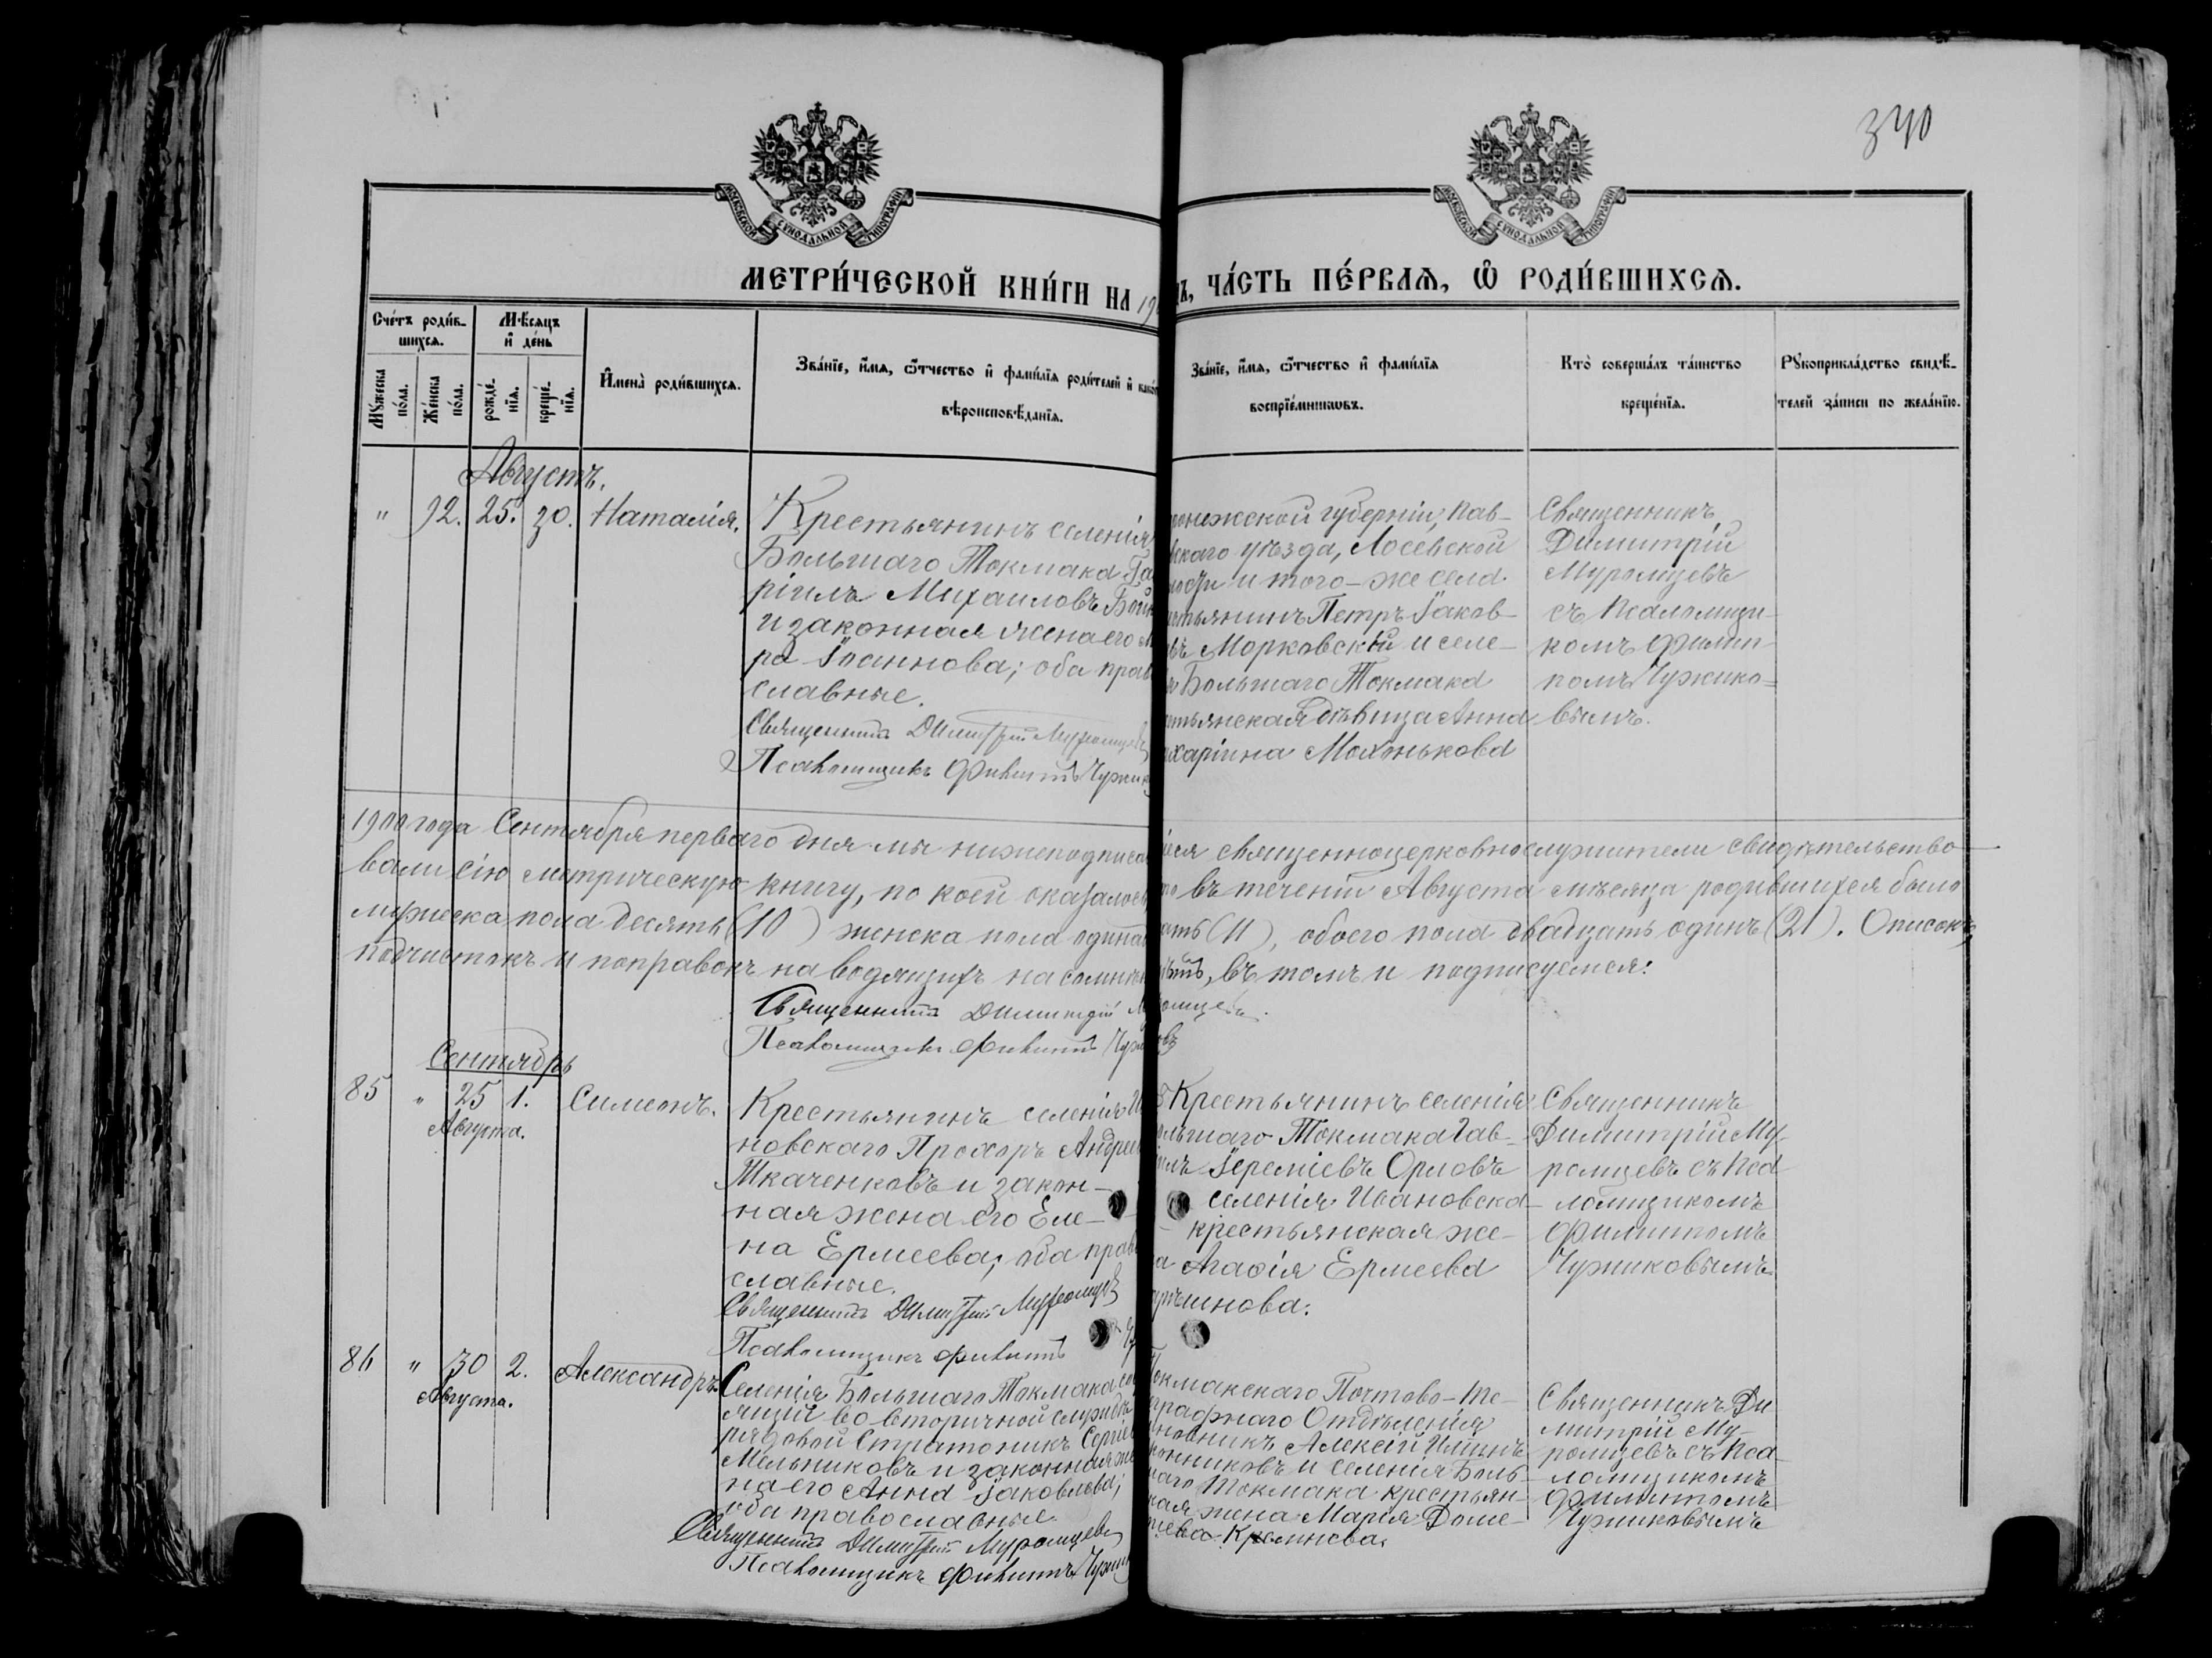 340
МОСКОВСКОЙ СУНОДАЛЬНОЙ ТИПОГРАФІИ
МОСКОВСКОЙ СУНОДАЛЬНОЙ ТИПОГРАФІИ
МЕТРИ́ЧЕСКОЙ КНИ́ГИ НА 19
ЧА́СТЬ ПЕ́РВАѦ, Ѡ РОДИ́ВШИХСѦ.
Сче́тъ роди́в-
шихсѧ.
Мꙋжеска по́ла.
Же́нска по́ла.
Мѣ́сѧцъ
и де́нь
рожде́нїѧ.
креще́нїѧ.
Имена̀ роди́вшихсѧ.
Зва́нїе, и́мѧ, ѻ́тчество и фами́лїѧ роди́телей и како
вѣроисповѣ́данїѧ.
Зва́нїе, и́мѧ, ѻ́тчество и фами́лїѧ
воспрїе́мникѡвъ.
Кто̀ соверша́лъ та́инство
креще́нїѧ.
Рꙋкоприкла́дство свидѣ́-
телей за́писи по жела́нїю.
Августъ.
" 92. 25. 30. Наталія.
Крестьянинъ селенія
Большаго Токмака Га
ріилъ Михаиловъ Бойк
и законная жена его М
ра Іоаннова; оба прав
славные.
Священникъ Димитрій Муромцевъ
Псаломщикъ Филиппъ Чужик
онежской губерніи, Пав-
скаго уѣзда, Лосевской
лости и того-же села
стьянинъ Петръ Іаков-
въ Морковскій и селе-
я Большаго Токмака
стьянская дѣвица Анна
харіина Мохонькова
Священникъ
Димитрій
Муромцевъ
съ Псаломщи-
комъ Филип-
помъ Чужико-
вымъ.
1900 года Сентября перваго дня мы нижеподписа
іеся священноцерковнослужители свидѣтельство-
вали сію метрическую книгу, по коей оказалось
то въ теченіи Августа мѣсяца родившихся было
мужеска пола десять (10) женска пола одинад
ать (11), обоего пола двадцать одинъ (21). Описокъ,
подчистокъ и поправокъ наводящихъ на сомнѣн
нѣтъ, въ томъ и подписуемся:
Священникъ Димитрій Муромцевъ.
Псаломщикъ Филиппъ Чужиковъ
Сентябрь
85 " 25 1. Симеонъ.
Августа.
Крестьянинъ селенія И
новскаго Прохоръ Андрее
Ткаченковъ и закон-
ная жена его Еле-
на Ермеева; оба прав
славные.
Священникъ Димитрій Муромцевъ
Псаломщикъ Филиппъ
Крестьянинъ селенія
ольшаго Токмака Гав-
іилъ Іереміевъ Орловъ
селенія Ивановска-
крестьянская же-
на Агафія Ермеева
шнова.
Священникъ
Димитрій Му-
ромцевъ съ Пса-
ломщикомъ
Филиппомъ
Чужиковымъ.
86 " 30 2. Александръ.
Августа.
Селенія Большаго Токмака со
ящій во вторичной службѣ
рядовой Стратоникъ Сергіе
Мельниковъ и законная же
на его Анна Іаковлева;
оба православные.
Священникъ Димитрій Муромцевъ
Псаломщикъ Филиппъ Чужик
Токмакскаго Почтово-Те-
графнаго Отдѣленія
новникъ Алексій Ильинъ
онниковъ и селенія Боль-
шаго Токмака крестьян-
ская жена Марія Доме-
Кремнева.
Священникъ Ди-
митрій Му-
ромцевъ съ Пса-
ломщикомъ
Филиппомъ
Чужиковымъ